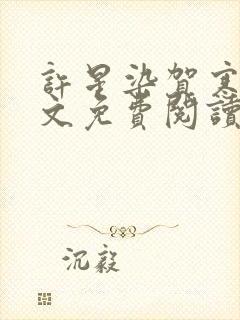 許星染賀寒
文免費閱讀
沉毅